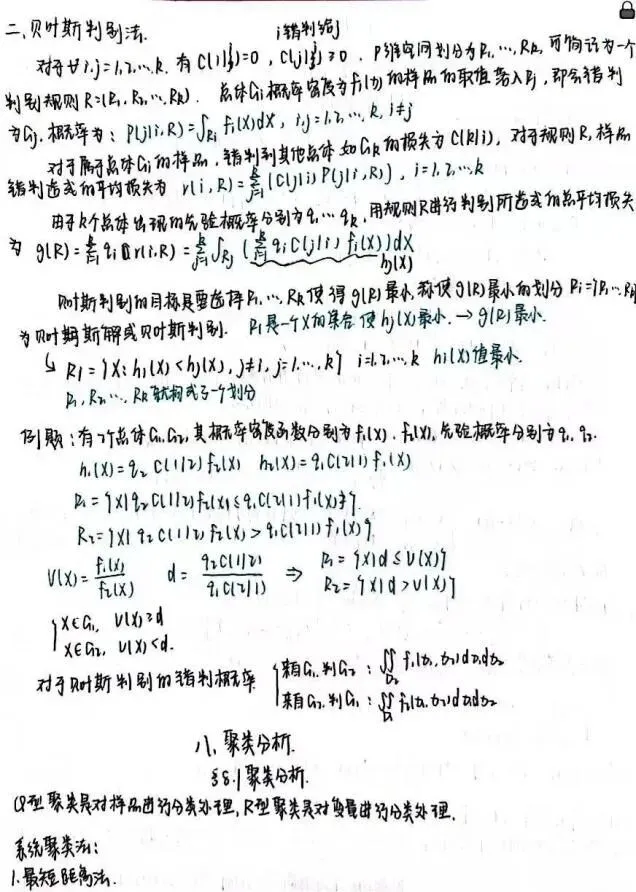 i错判给j
二、贝叶斯判别法.
对于∀i,j=1,2,…,k. 有C(i|i)=0, C(j|i)≥0. P维空间划分为R₁,…,Rk, 可简记为一个
判别规则R=(R₁,R₂,…,Rk). 总体Gi概率密度为fi(x)的样品的取值落入Rj, 即会错判
为Gj. 概率为: P(j|i,R)=∫Rj fi(x)dx, i,j=1,2,…,k, i≠j
对于属于总体Gi的样品, 错判到其他总体如Gk的损失为C(k|i), 对于规则R, 样品
错判造成的平均损失为 r(i,R)=Σj=1^k(C(j|i)P(j|i,R)), i=1,2,…k
由于k个总体出现的先验概率分别为q₁…qk, 用规则R进行判别所造成的总平均损失
为 g(R)=Σi=1^k qi r(i,R)=Σj=1^k∫Rj(Σi=1^k qi C(j|i) fi(x))dx
hj(x)
贝叶斯判别的目标是要选择R₁,…,Rk使得g(R)最小, 称使g(R)最小的划分 Ri={R₁…Rk}
为贝叶斯解或贝叶斯判别. Ri是一个X的集合使hj(x)最小.→g(R)最小.
↳ Ri={X:hi(x)<hj(x), j≠i, j=1,…,k} i=1,2,…,k hi(x)值最小.
R₁,R₂…,Rk就构成了一个划分
例题:有2个总体G₁,G₂,其概率密度函数分别为f₁(x),f₂(x),先验概率分别为q₁,q₂.
h₁(x)=q₂C(1|2)f₂(x) h₂(x)=q₁C(2|1)f₁(x)
R₁={X|q₂C(1|2)f₂(x)≤q₁C(2|1)f₁(x)}
R₂={X|q₂C(1|2)f₂(x)>q₁C(2|1)f₁(x)}
V(x)=f₁(x)/f₂(x) d=q₂C(1|2)/q₁C(2|1) ⇒ R₁={X|d≤V(x)}
R₂={X|d>V(x)}
{X∈G₁, V(x)≥d
X∈G₂, V(x)<d.
对于贝叶斯判别的错判概率 {来自G₁,判G₂: ∬D₂ f₁(z₁,z₂)dz₁dz₂
来自G₂,判G₁: ∬D₁ f₂(z₁,z₂)dz₁dz₂
八、聚类分析.
§8.1聚类分析.
Q型聚类是对样品进行分类处理, R型聚类是对变量进行分类处理.
系统聚类法:
1.最短距离法.